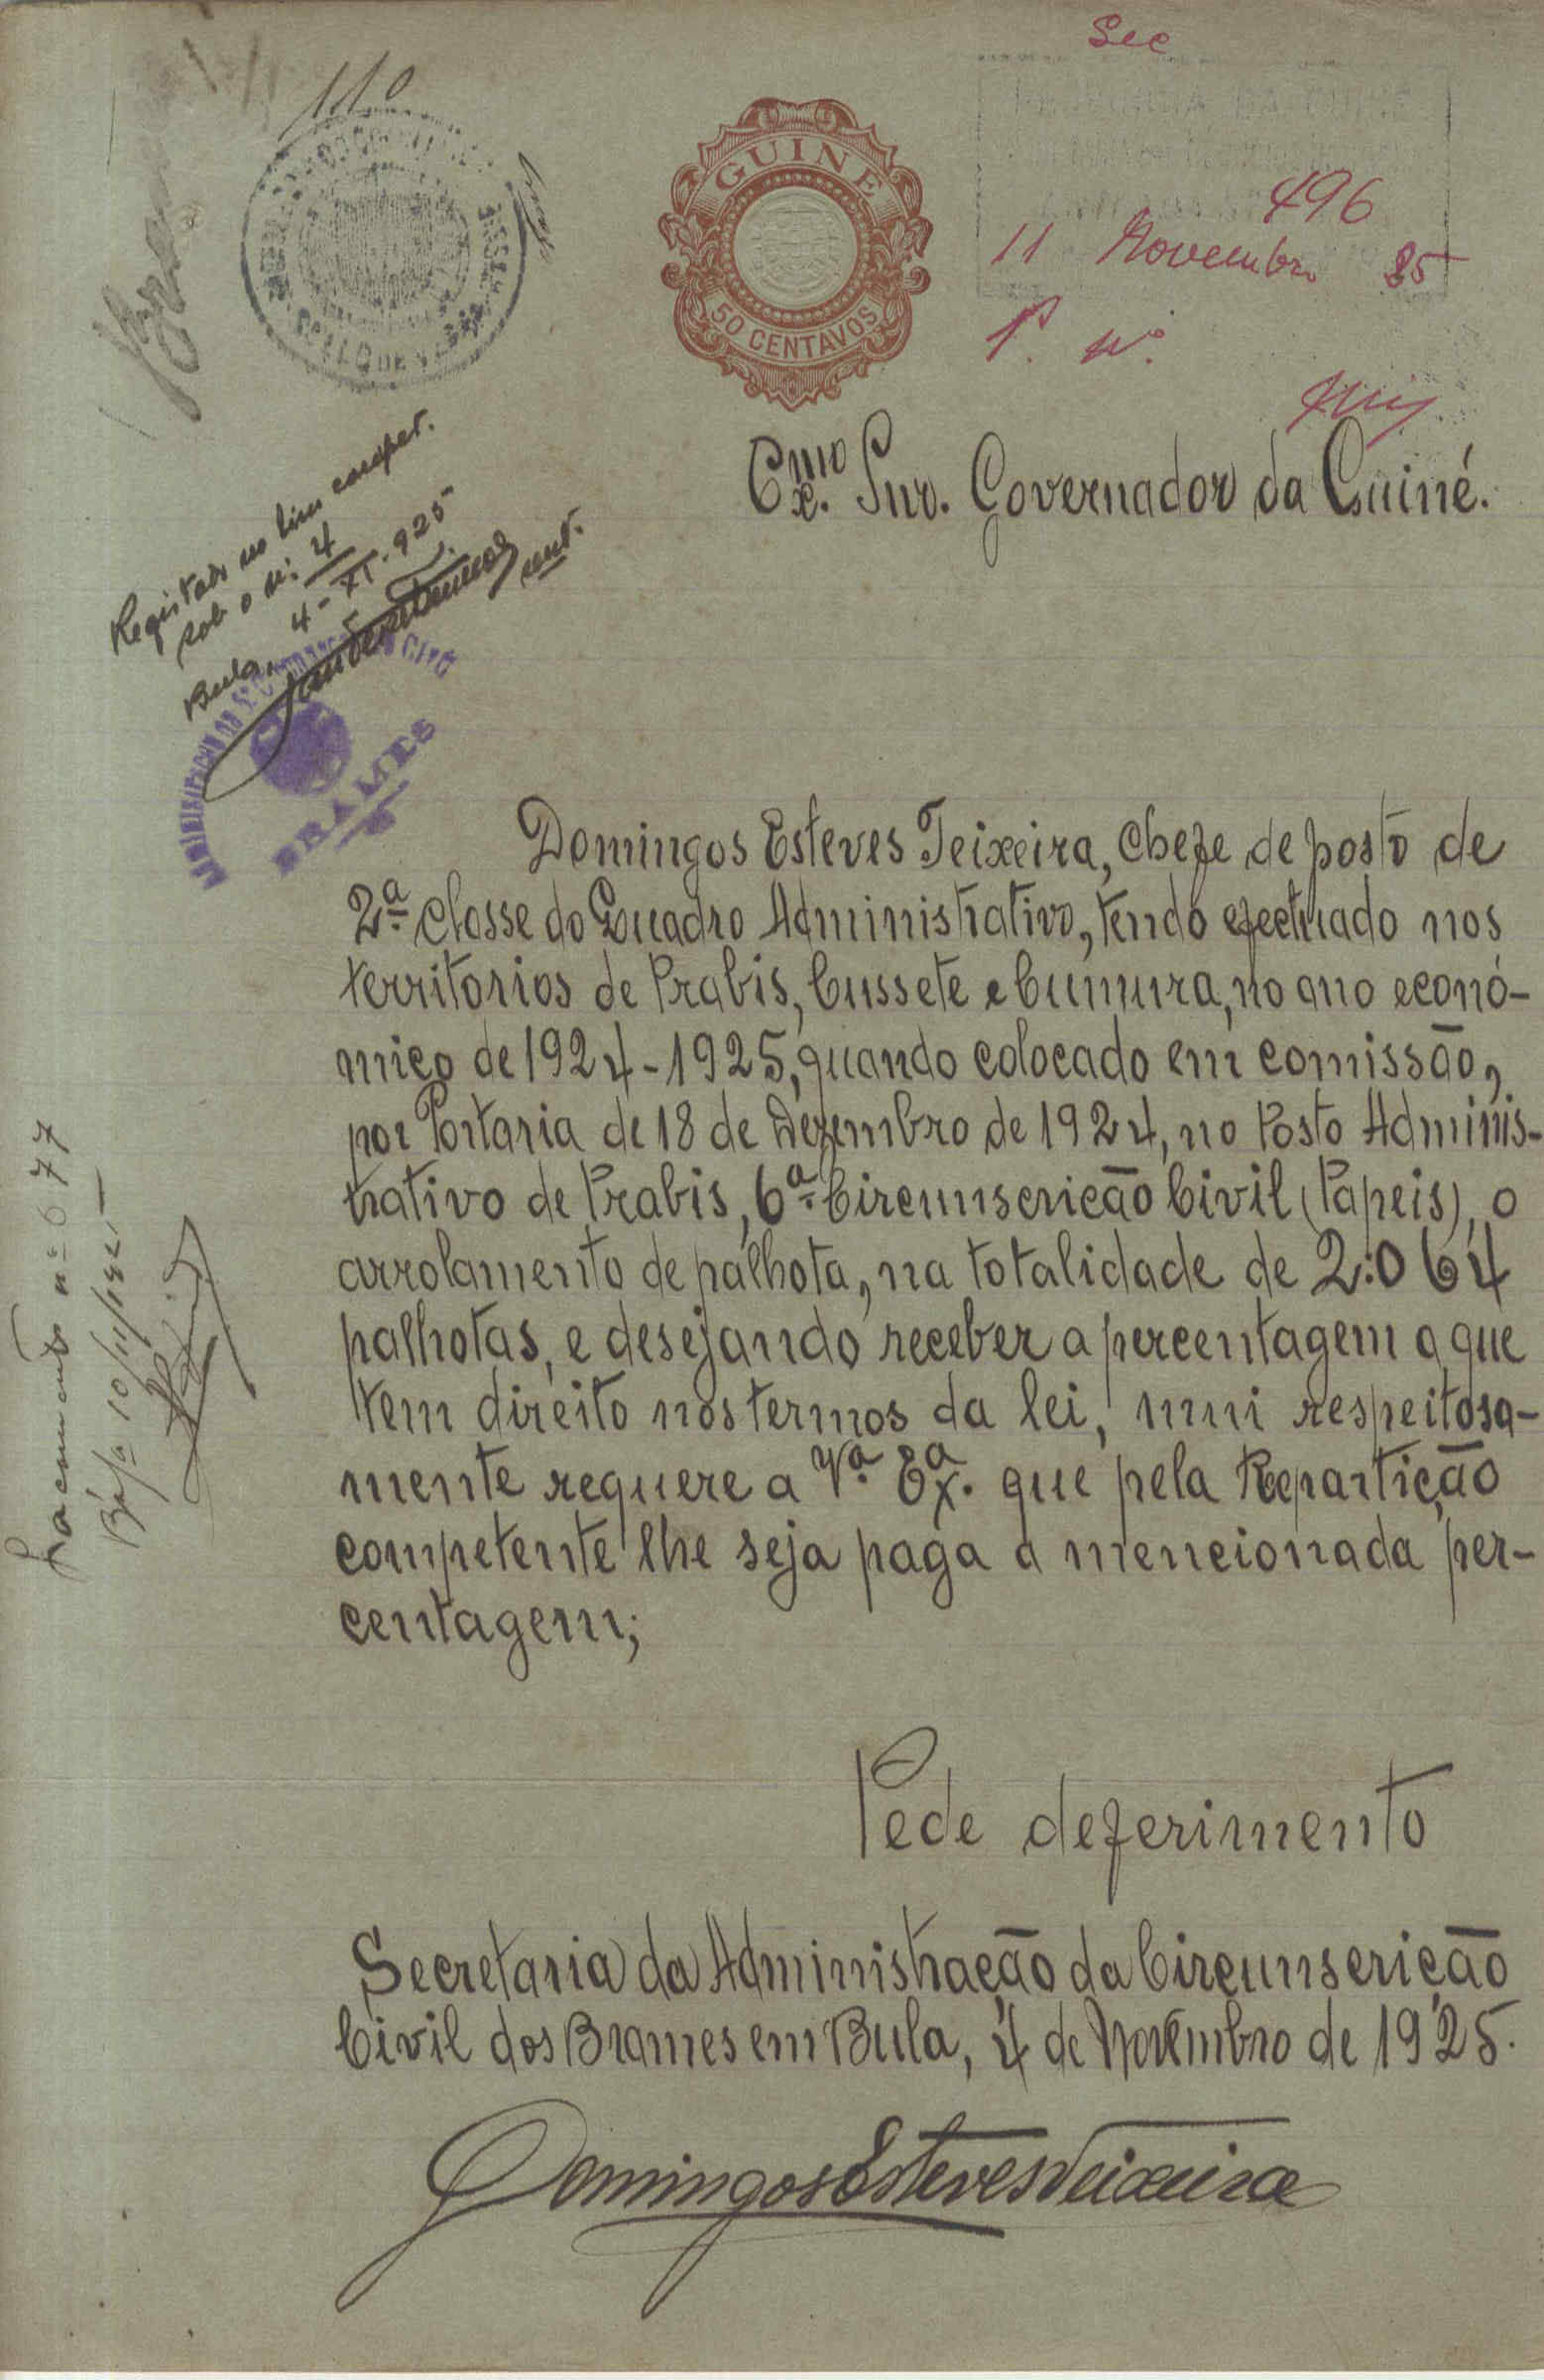 Sec
110
GUINÉ
50 CENTAVOS
496
11 Novembro 25
Exmo. Snr. Governador da Guiné.
Registado no livro compet.
sob o nº. 4
Bula, 4-XI-925
BRAMES
Domingos Esteves Teixeira, Chefe de posto de
2ª classe do Quadro Administrativo, tendo efectuado nos
territorios de Prabis, Cussete e Cumura, no ano econó-
mico de 1924-1925, quando colocado em comissão,
por Portaria de 18 de Dezembro de 1924, no Posto Adminis-
trativo de Prabis, 6ª Circunscrição Civil (Papeis), o
arrolamento de palhota, na totalidade de 2:064
palhotas, e desejando receber a percentagem a que
tem direito nos termos da lei, mui respeitosa-
mente requere a Vª. Exª. que pela Repartição
competente lhe seja paga a mencionada per-
centagem;
Pede deferimento
Secretaria da Administração da Circunscrição
Civil dos Brames em Bula, 4 de Novembro de 1925.
Domingos Esteves Teixeira